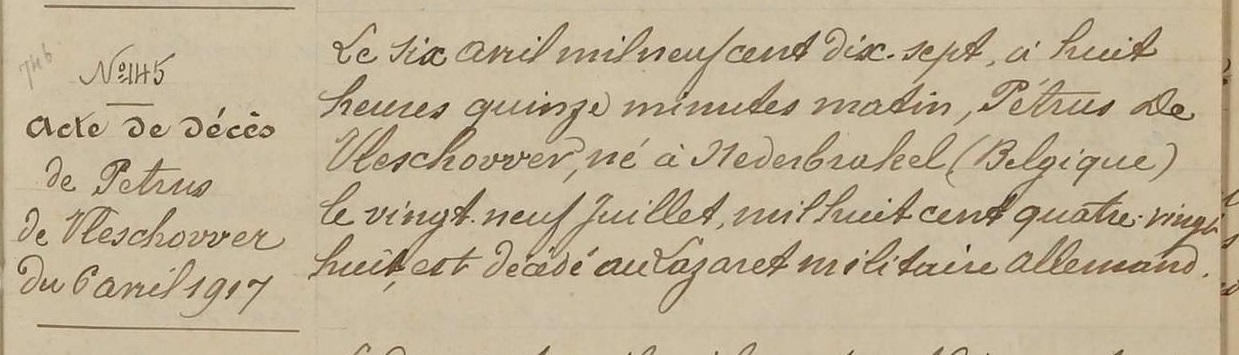 746
No 145
Acte de décès
de Petrus
de Vleschovver
du 6 avril 1917
Le six avril mil neuf cent dix-sept, à huit
heures quinze minutes matin, Pétrus De
Vleschovver, né à Nederbrakel (Belgique)
le vingt-neuf Juillet, mil huit cent quatre-vingt
huit, est décédé au Lazaret militaire allemand.